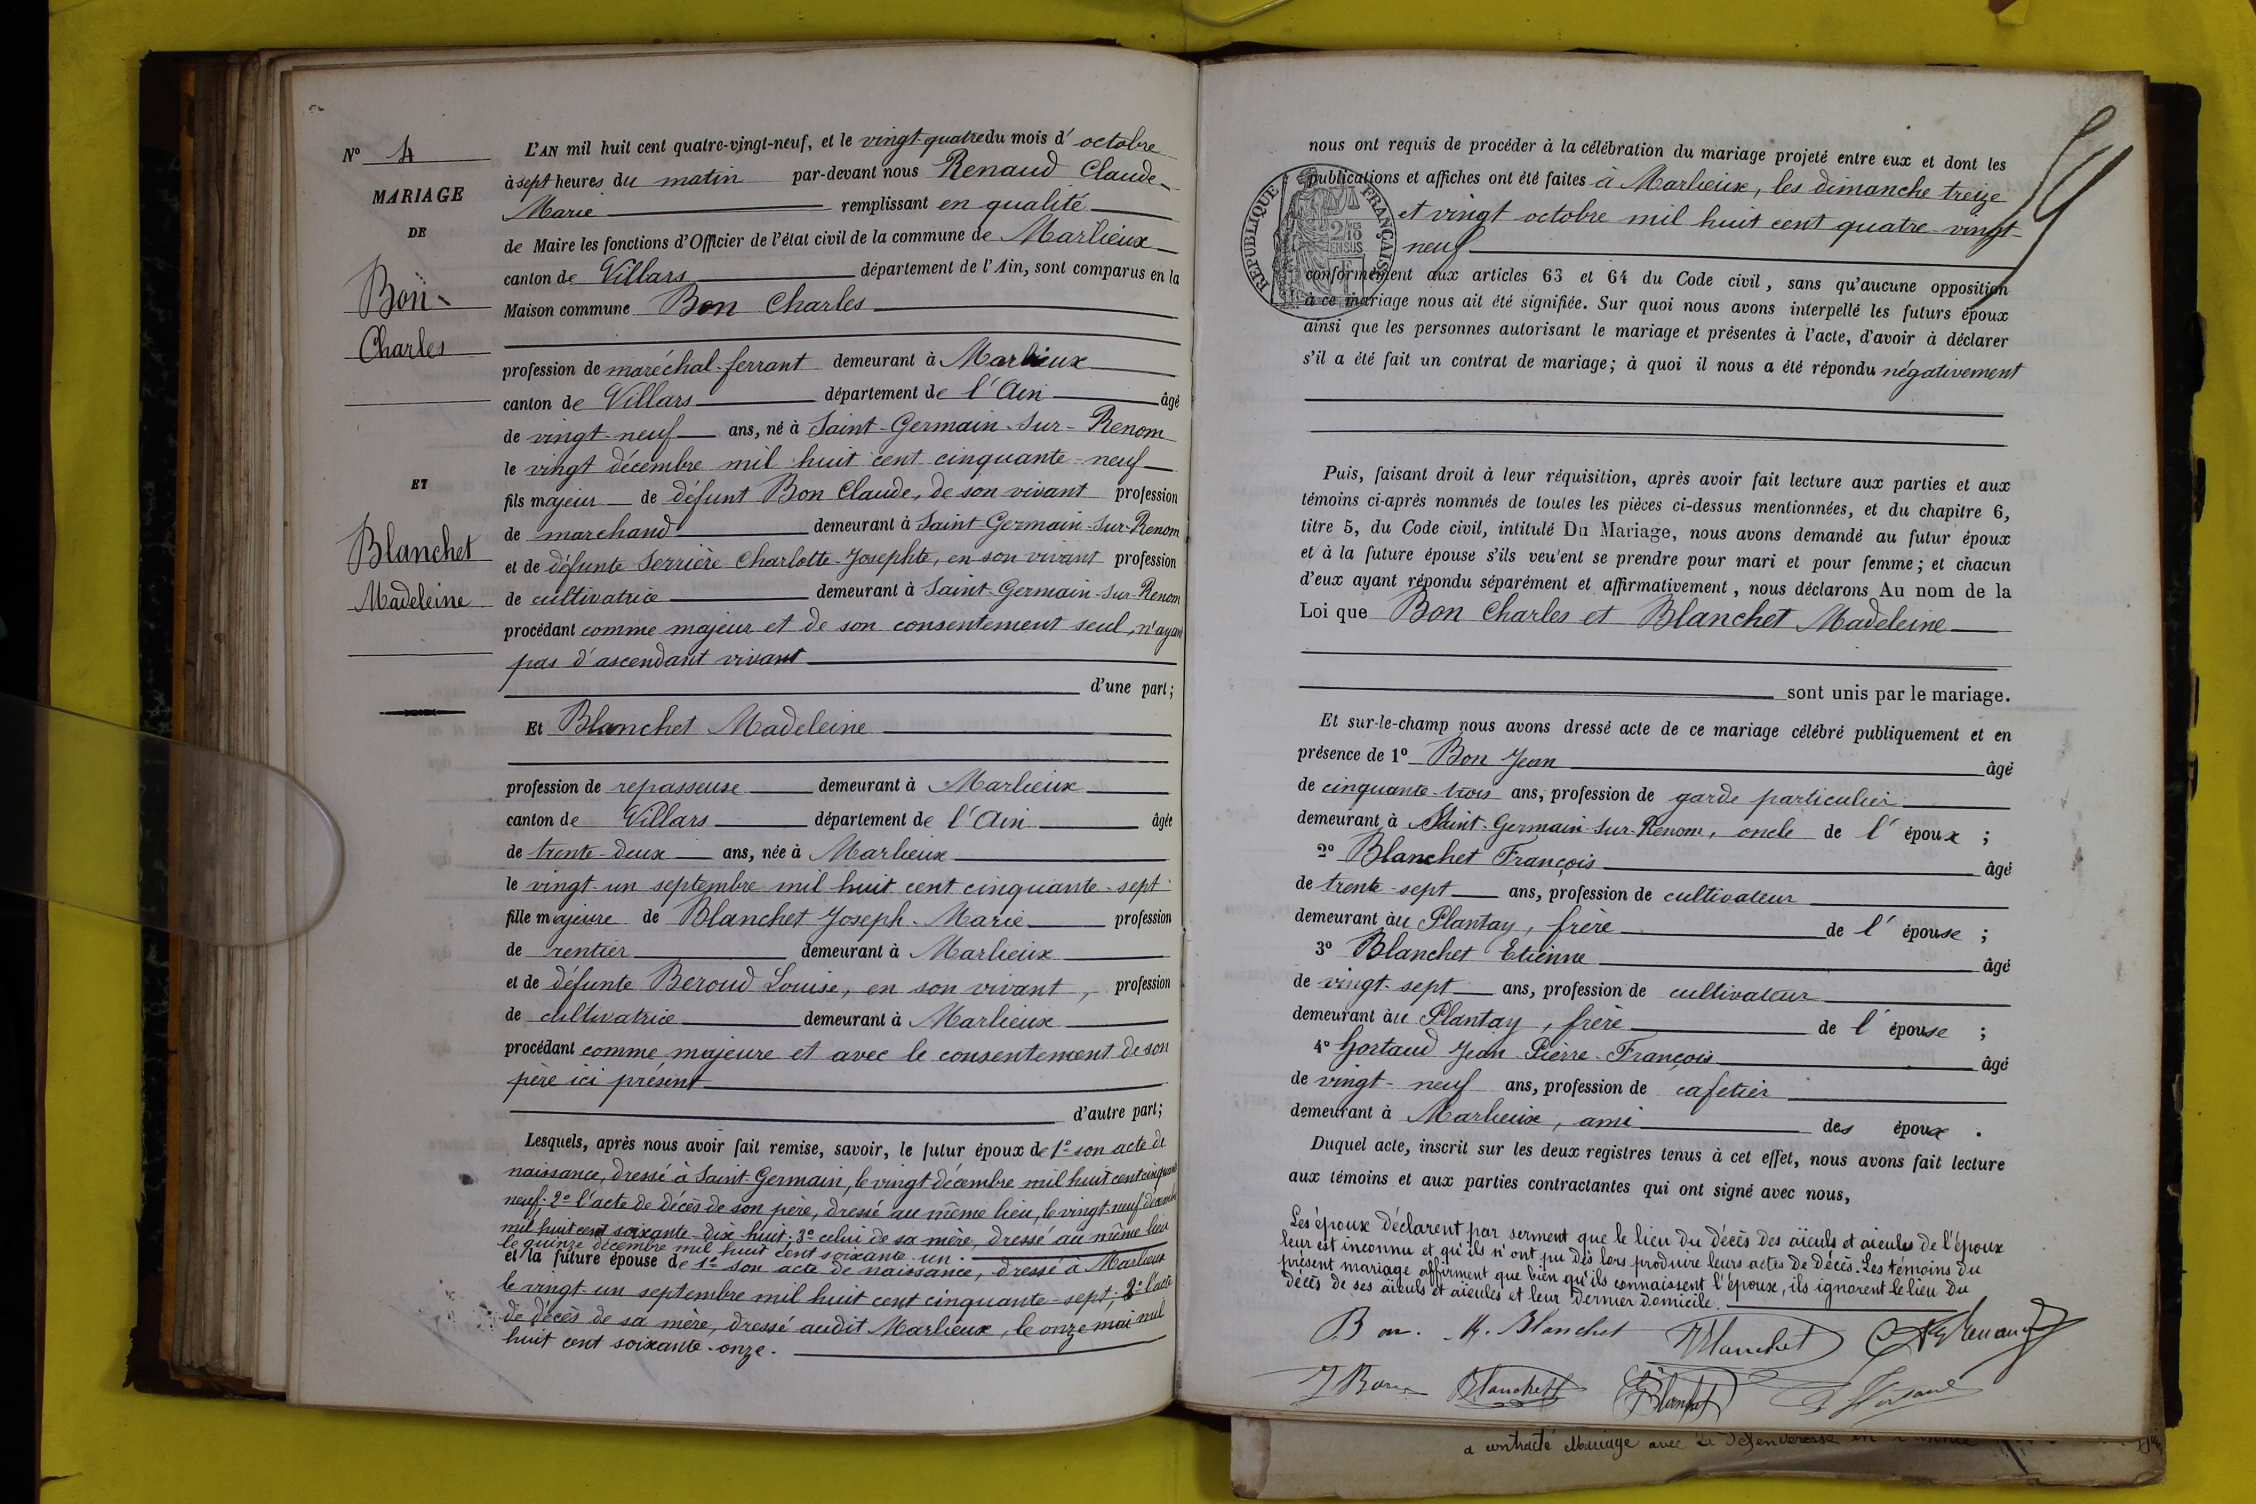 N° 4
MARIAGE
DE
Bon
Charles
ET
Blanchet
Madeleine
L'AN mil huit cent quatre-vingt-neuf, et le vingt quatre du mois d'octobre
à sept heures du matin par-devant nous Renaud Claude-
Marie remplissant en qualité
de Maire les fonctions d'Officier de l'état civil de la commune de Marlieux
canton de Villars département de l'Ain, sont comparus en la
Maison commune Bon Charles
profession de maréchal-ferrant demeurant à Marlieux
canton de Villars département de l'Ain âgé
de vingt-neuf ans, né à Saint-Germain-sur-Renom
le vingt décembre mil huit cent cinquante-neuf
fils majeur de défunt Bon Claude, de son vivant profession
de marchand demeurant à Saint Germain-sur-Renom
et de défunte Serrière Charlotte-Josephte, en son vivant profession
de cultivatrice demeurant à Saint-Germain-sur-Renom
procédant comme majeur et de son consentement seul, n'ayant
pas d'ascendant vivant
d'une part;
Et Blanchet Madeleine
profession de repasseuse demeurant à Marlieux
canton de Villars département de l'Ain âgée
de trente-deux ans, née à Marlieux
le vingt-un septembre mil huit cent cinquante-sept
fille majeure de Blanchet Joseph-Marie profession
de rentier demeurant à Marlieux
et de défunte Beroud Louise, en son vivant, profession
de cultivatrice demeurant à Marlieux
procédant comme majeure et avec le consentement de son
père ici présent
d'autre part;
Lesquels, après nous avoir fait remise, savoir, le futur époux de 1° son acte de
naissance, dressé à Saint-Germain, le vingt décembre mil huit cent cinquante
neuf; 2° l'acte de décès de son père, dressé au même lieu, le vingt-neuf décembre
mil huit cent soixante-dix huit; 3° celui de sa mère, dressé au même lieu
le quinze décembre mil huit cent soixante-un
et la future épouse de 1° son acte de naissance, dressé à Marlieux
le vingt-un septembre mil huit cent cinquante-sept; 2° l'acte
de décès de sa mère, dressé audit Marlieux, le onze mai mil
huit cent soixante-onze.
nous ont requis de procéder à la célébration du mariage projeté entre eux et dont les
publications et affiches ont été faites à Marlieux, les dimanche treize
et vingt octobre mil huit cent quatre-vingt-
neuf
RÉPUBLIQUE FRANÇAISE
conformément aux articles 63 et 64 du Code civil, sans qu'aucune opposition
à ce mariage nous ait été signifiée. Sur quoi nous avons interpellé les futurs époux
ainsi que les personnes autorisant le mariage et présentes à l'acte, d'avoir à déclarer
s'il a été fait un contrat de mariage; à quoi il nous a été répondu négativement
Puis, faisant droit à leur réquisition, après avoir fait lecture aux parties et aux
témoins ci-après nommés de toutes les pièces ci-dessus mentionnées, et du chapitre 6,
titre 5, du Code civil, intitulé Du Mariage, nous avons demandé au futur époux
et à la future épouse s'ils veu'ent se prendre pour mari et pour femme; et chacun
d'eux ayant répondu séparément et affirmativement, nous déclarons Au nom de la
Loi que Bon Charles et Blanchet Madeleine
sont unis par le mariage.
Et sur-le-champ nous avons dressé acte de ce mariage célébré publiquement et en
présence de 1° Bon Jean âgé
de cinquante-trois ans, profession de garde particulier
demeurant à Saint-Germain-sur-Renom, oncle de l'époux ;
2° Blanchet François âgé
de trente-sept ans, profession de cultivateur
demeurant au Plantay, frère de l'épouse ;
3° Blanchet Etienne âgé
de vingt-sept ans, profession de cultivateur
demeurant au Plantay, frère de l'épouse ;
4° Gortaud Jean-Pierre-François âgé
de vingt-neuf ans, profession de cafetier
demeurant à Marlieux, ami des époux .
Duquel acte, inscrit sur les deux registres tenus à cet effet, nous avons fait lecture
aux témoins et aux parties contractantes qui ont signé avec nous,
Les époux déclarent par serment que le lieu du décès des aïeuls et aïeules de l'époux
leur est inconnu et qu'ils n'ont pu dès lors produire leurs actes de décès. Les témoins du
présent mariage affirment que bien qu'ils connaissent l'époux, ils ignorent le lieu du
décès de ses aïeuls et aïeules et leur dernier domicile.
Bon. M. Blanchet Blanchet Renaud
J Bon Blanchet Blanchet
a contracté Mariage avec la défenderesse en